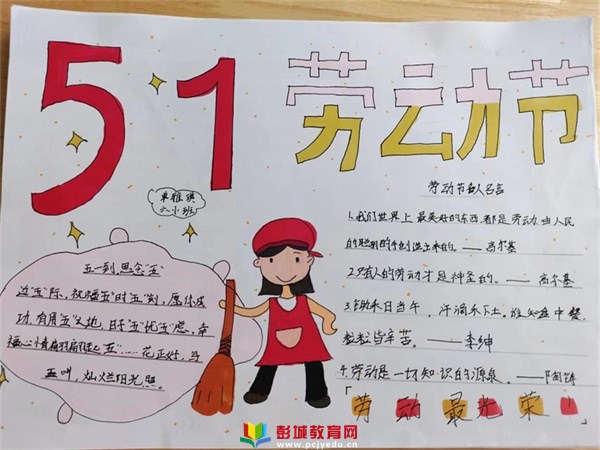 51 劳动节
单雅琪
六小班
劳动节名人名言
1.我们世界上最美好的东西,都是劳动,由人民
的聪明的手创造出来的。——高尔基
2.只有人的劳动才是神圣的。——高尔基
3.锄禾日当午,汗滴禾下土。谁知盘中餐,
粒粒皆辛苦。——李绅
4.劳动是一切知识的源泉。——陶铸
五一到,思念"五"
边"五"际,祝福"五"时"五"刻,愿你成
功,有用"五"之地,日子"五"忧"五"虑,幸
福心情
"五"……花正好,鸟
正叫,灿烂阳光照。
「劳动最光荣!」
彭城教育网
www.pcjyedu.cn